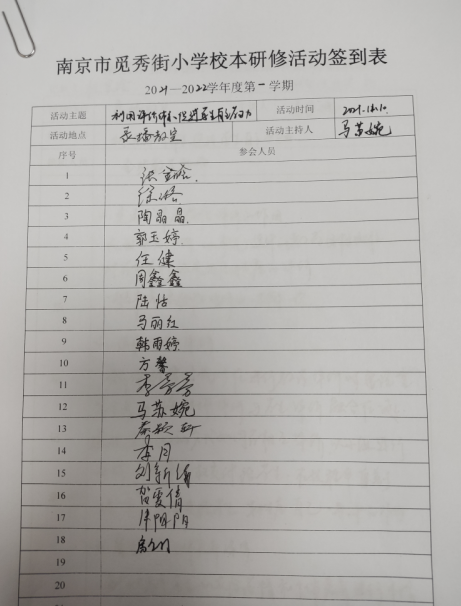 南京市觅秀街小学校本研修活动签到表
2021—2022学年度第一学期
活动主题 利用评价 促进 活动时间 2021.
活动地点 录播教室 活动主持人 马苏婉
序号 参会人员
1 张
2 徐
3 陶晶晶
4 郭玉婷
5 任健
6 周鑫鑫
7 陆怡
8 马丽红
9 韩雨婷
10 方馨
11 李
12 马苏婉
13 秦
14 李月
15 刘新
16 贺爱倩
17 阳
18
19
20